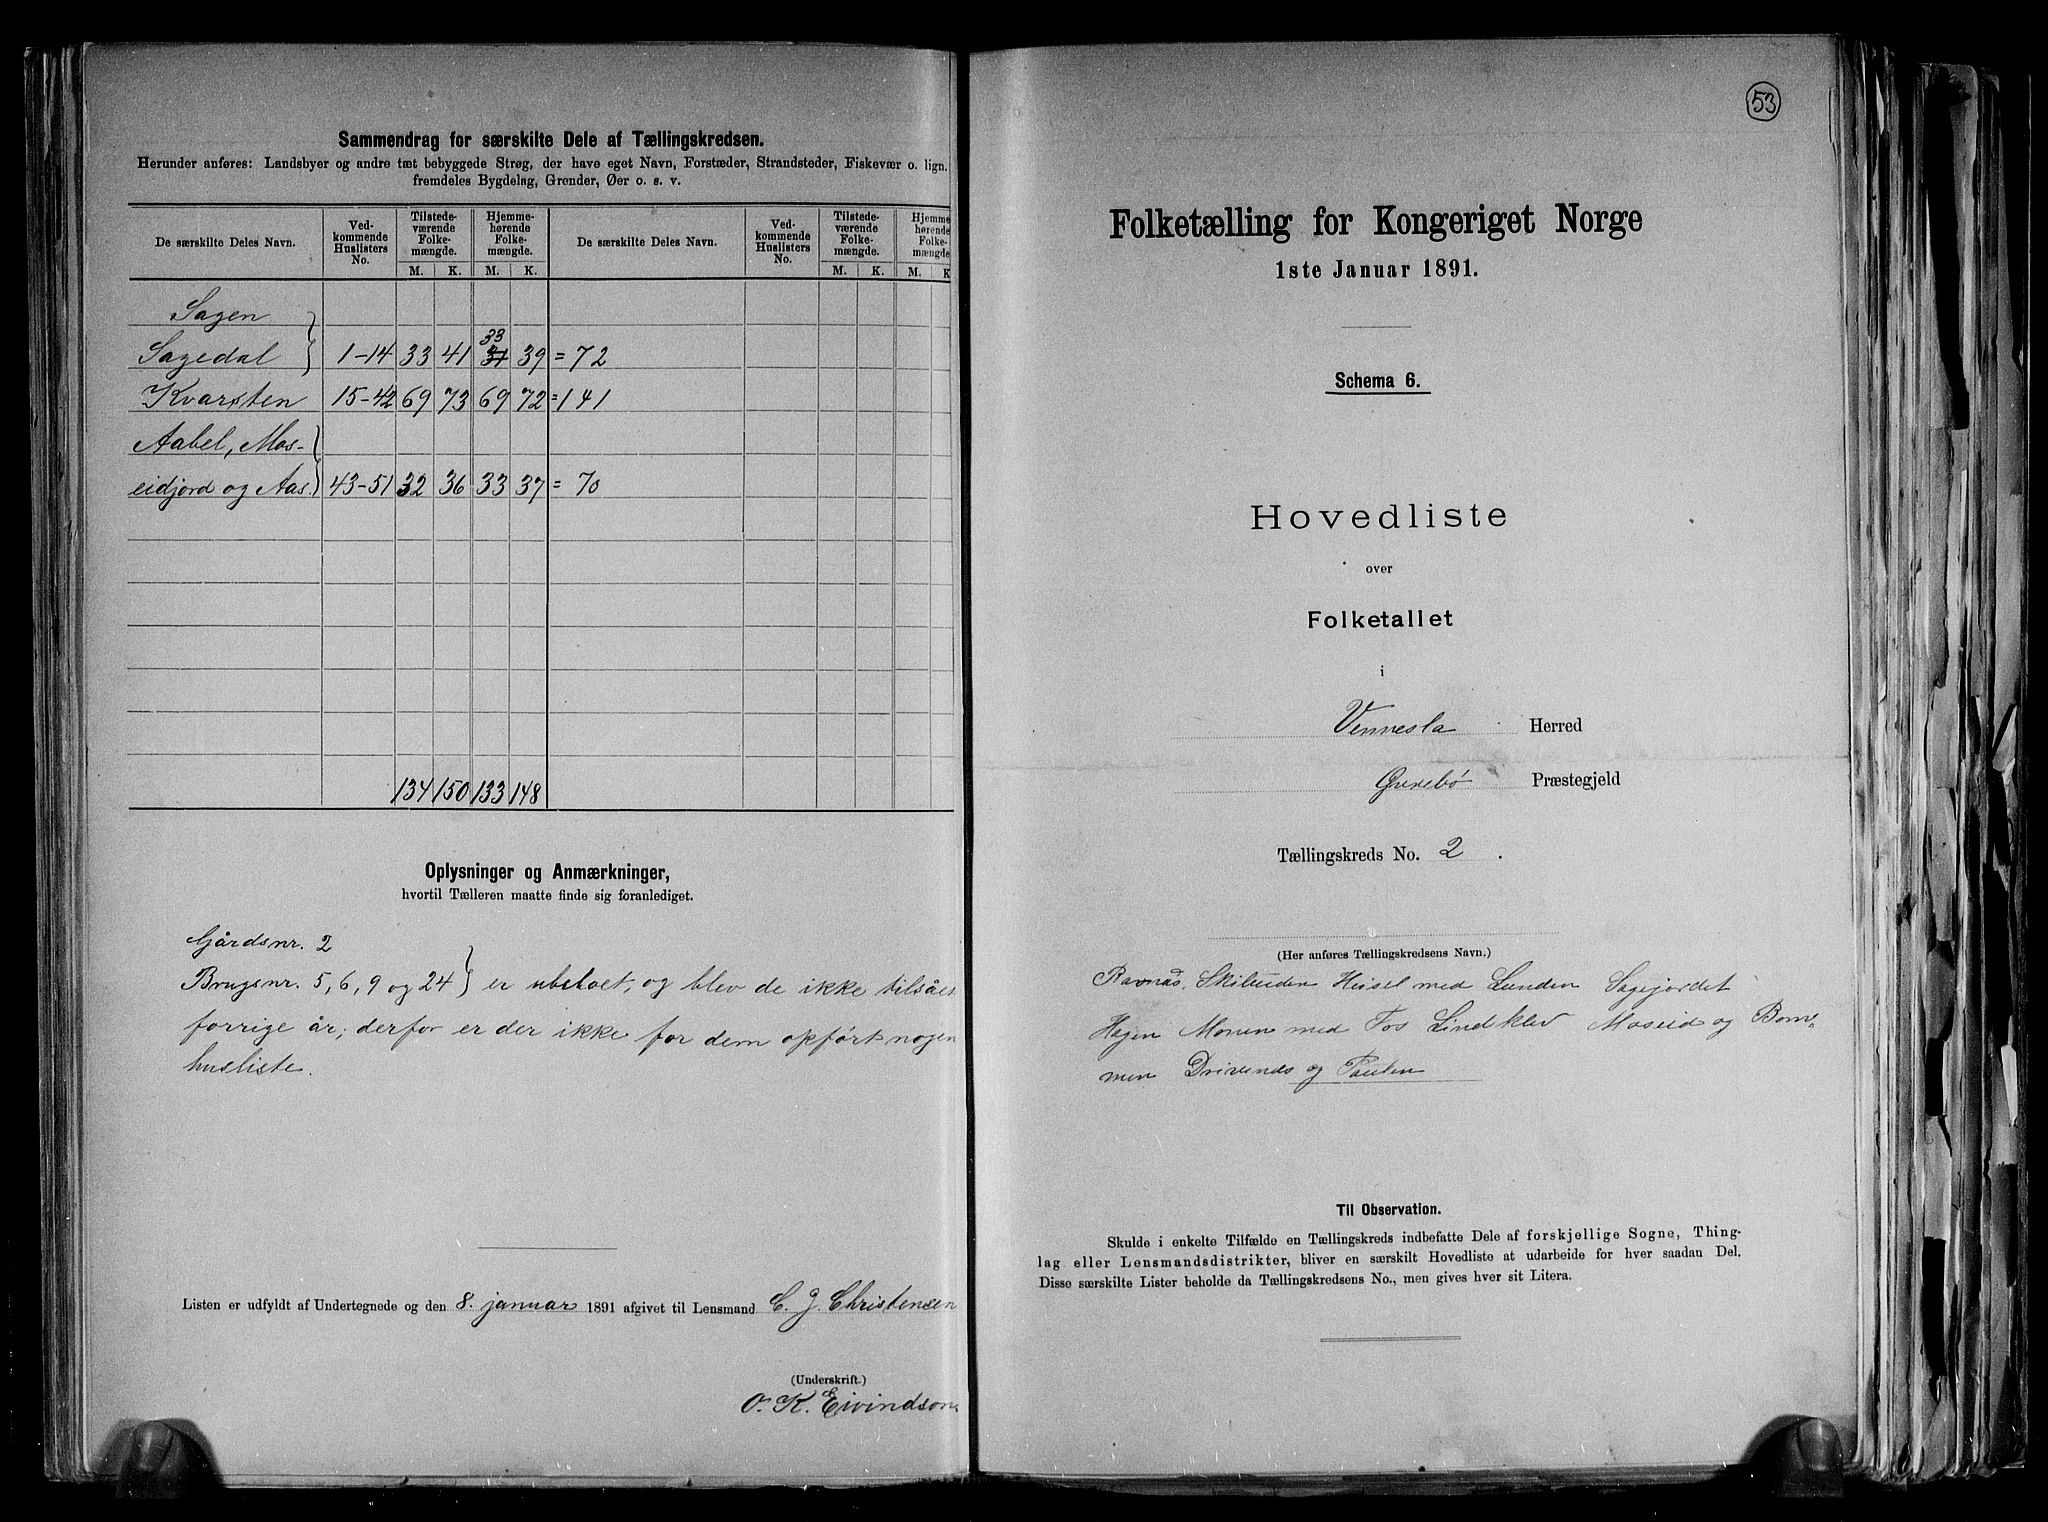 Sammendrag for særskilte Dele af Tællingskredsen.
Herunder anføres: Landsbyer og andre tæt bebyggede Strøg, der have eget Navn, Forstæder, Strandsteder, Fiskevær o. lign.
fremdeles Bygdelag, Grender, Øer o. s. v.
De særskilte Deles Navn. Ved-kommende Huslisters No. Tilstede-værende Folke-mængde. Hjemme-hørende Folke-mængde. De særskilte Deles Navn. Ved-kommende Huslisters No. Tilstede-værende Folke-mængde. Hjemme-hørende Folke-mængde
M. K. M. K. M. K. M. K
Sagen
33
Sagedal 1-14 33 41 31 39 = 72
Kvarsten 15-42 69 73 69 72 = 141
Aabel, Mos-
eidjord og Aas. 43-51 32 36 33 37 = 70
134 150 133 148
Oplysninger og Anmærkninger,
hvortil Tælleren maatte finde sig foranlediget.
Gårdsnr. 2
Brugsnr. 5, 6, 9 og 24 er ubeboet, og blev de ikke tilsået
forrige år; derfor er der ikke for dem opført nogen
husliste.
Listen er udfyldt af Undertegnede og den 8. januar 1891 afgivet til Lensmand C. J. Christensen
(Underskrift.)
O. K. Eivindson
53
Folketælling for Kongeriget Norge
1ste Januar 1891.
Schema 6.
Hovedliste
over
Folketallet
i
Vennesla Herred
Øvrebø Præstegjeld
Tællingskreds No. 2.
(Her anføres Tællingskredsens Navn.)
Ravnås, Heisel med Lunden Sagejordet
Hagen Monen med Fos Lindklev Moseid og Bom-
men Drivenes og
Til Observation.
Skulde i enkelte Tilfælde en Tællingskreds indbefatte Dele af forskjellige Sogne, Thing-
lag eller Lensmandsdistrikter, bliver en særskilt Hovedliste at udarbeide for hver saadan Del.
Disse særskilte Lister beholde da Tællingskredsens No., men gives hver sit Litera.